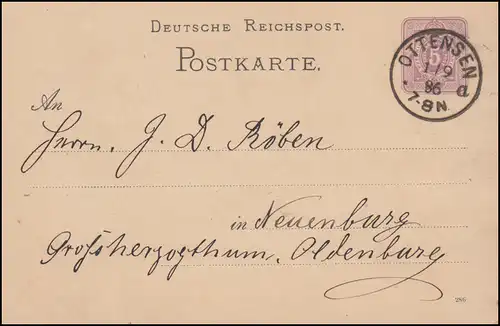 DEUTSCHE REICHSPOST.
POSTKARTE.
5
OTTENSEN
1/9
86 a
* 7-8N.
An
Herrn. J. D. Röben
in Neuenburg
Großherzogthum, Oldenburg